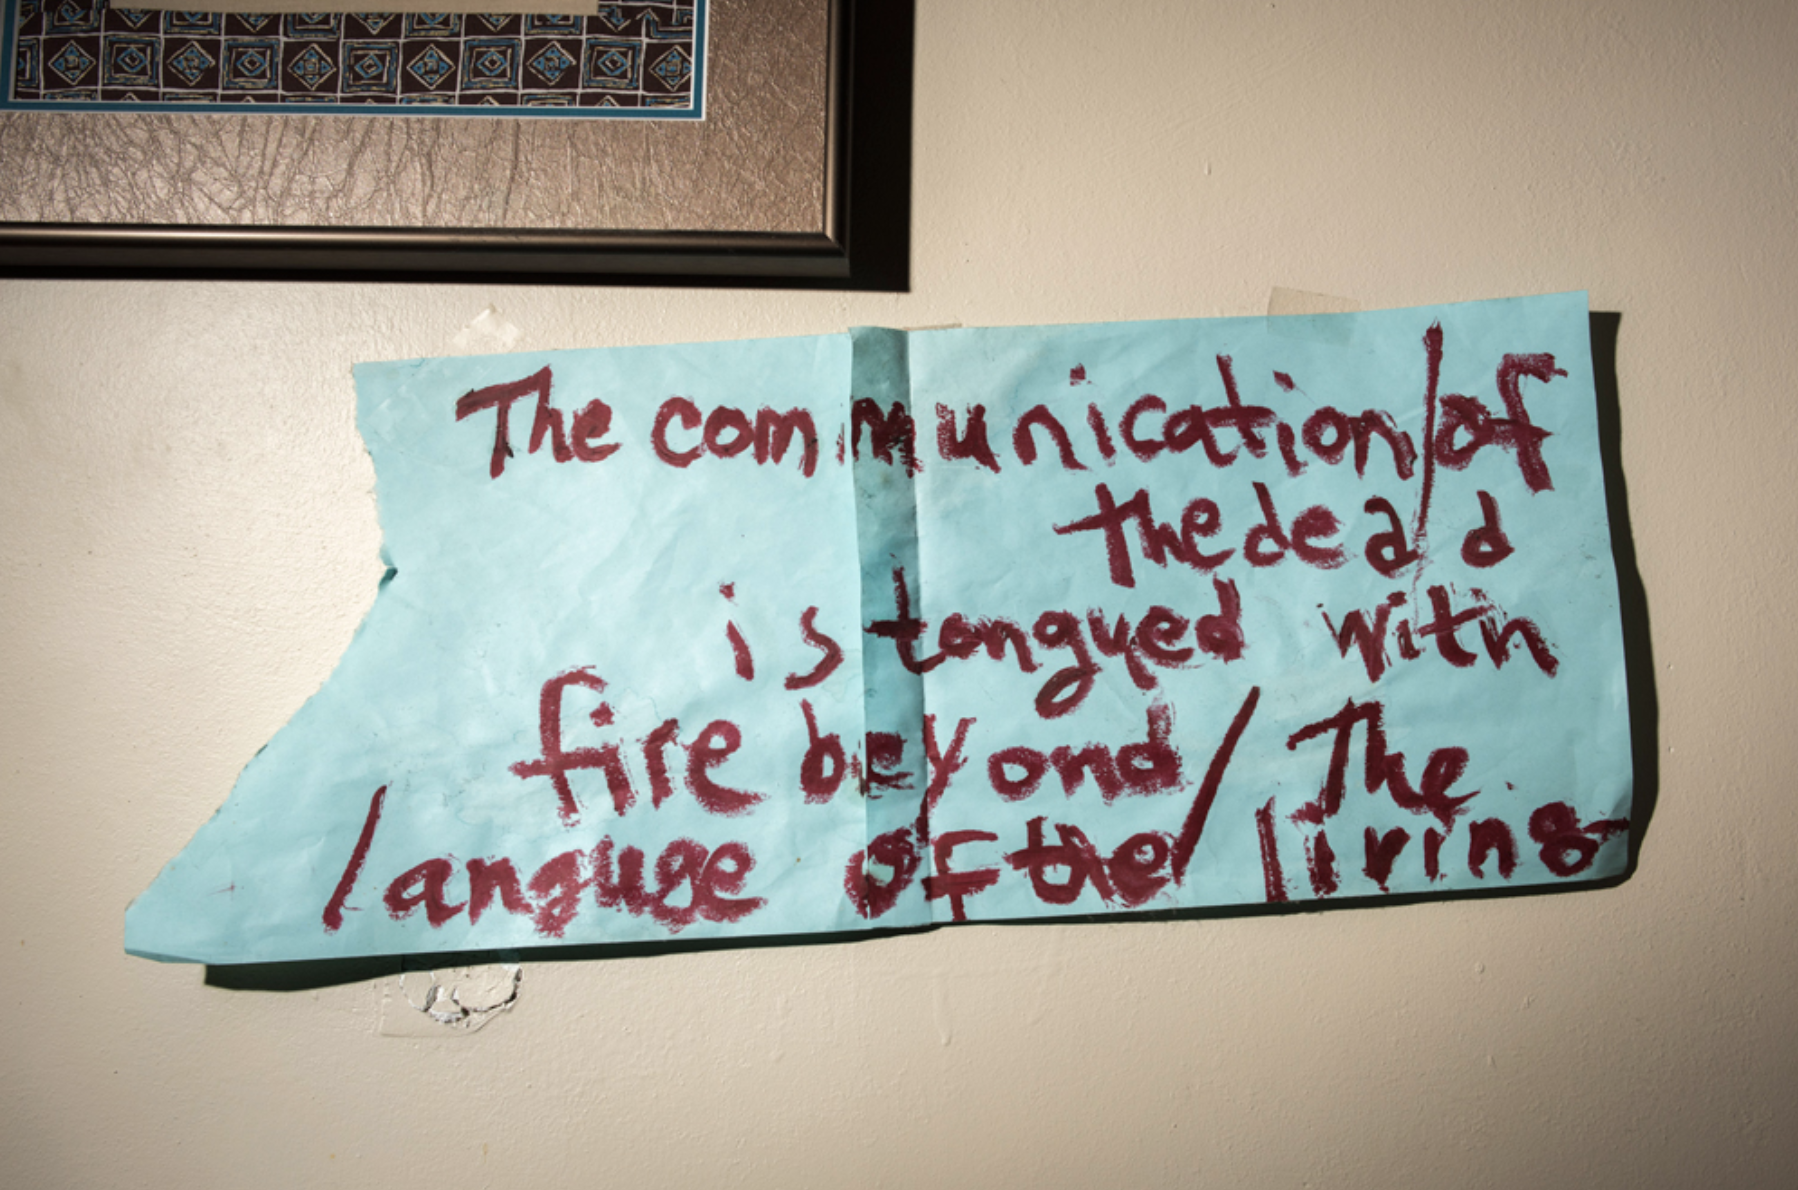 The communication/of
the dea/d
is tongued with
fire beyond/ The
languge of the/ living